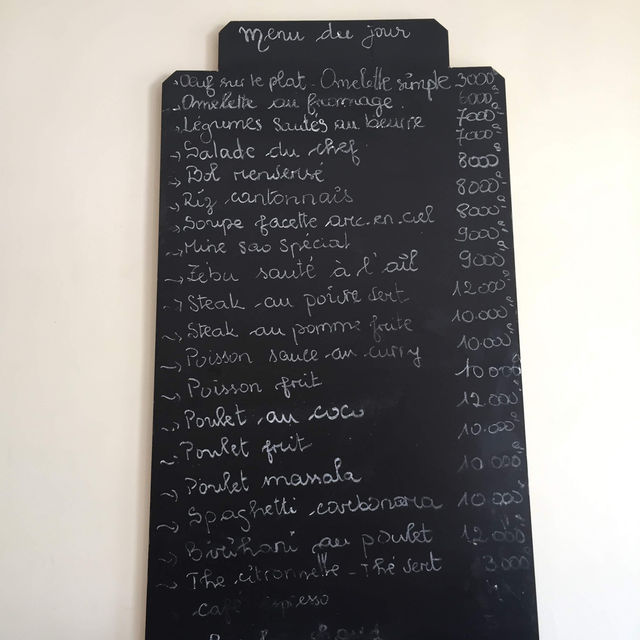 Menu du jour
→ Oeuf sur le plat - Omelette simple 3000
Omelette au fromage 6000
→ Légumes sautés au beurre 7000
→ Salade du chef 7000
→ Bol renversé 8000
→ Riz cantonnais 8000
→ Soupe facette arc.en.ciel 8000
→ Mine sao spécial 9000
→ Zébu sauté à l'ail 9000
→ Steak au poivre vert 12000
→ Steak au pomme frite 10.000
→ Poisson sauce au curry 10.000
→ Poisson frit 10 000
→ Poulet au coco 12.000
→ Poulet frit 10.000
→ Poulet massala 10 000
→ Spaghetti carbonara 10 000
→ Birihani au poulet 12 000
→ Thé citronnelle - Thé vert 3000
café espresso